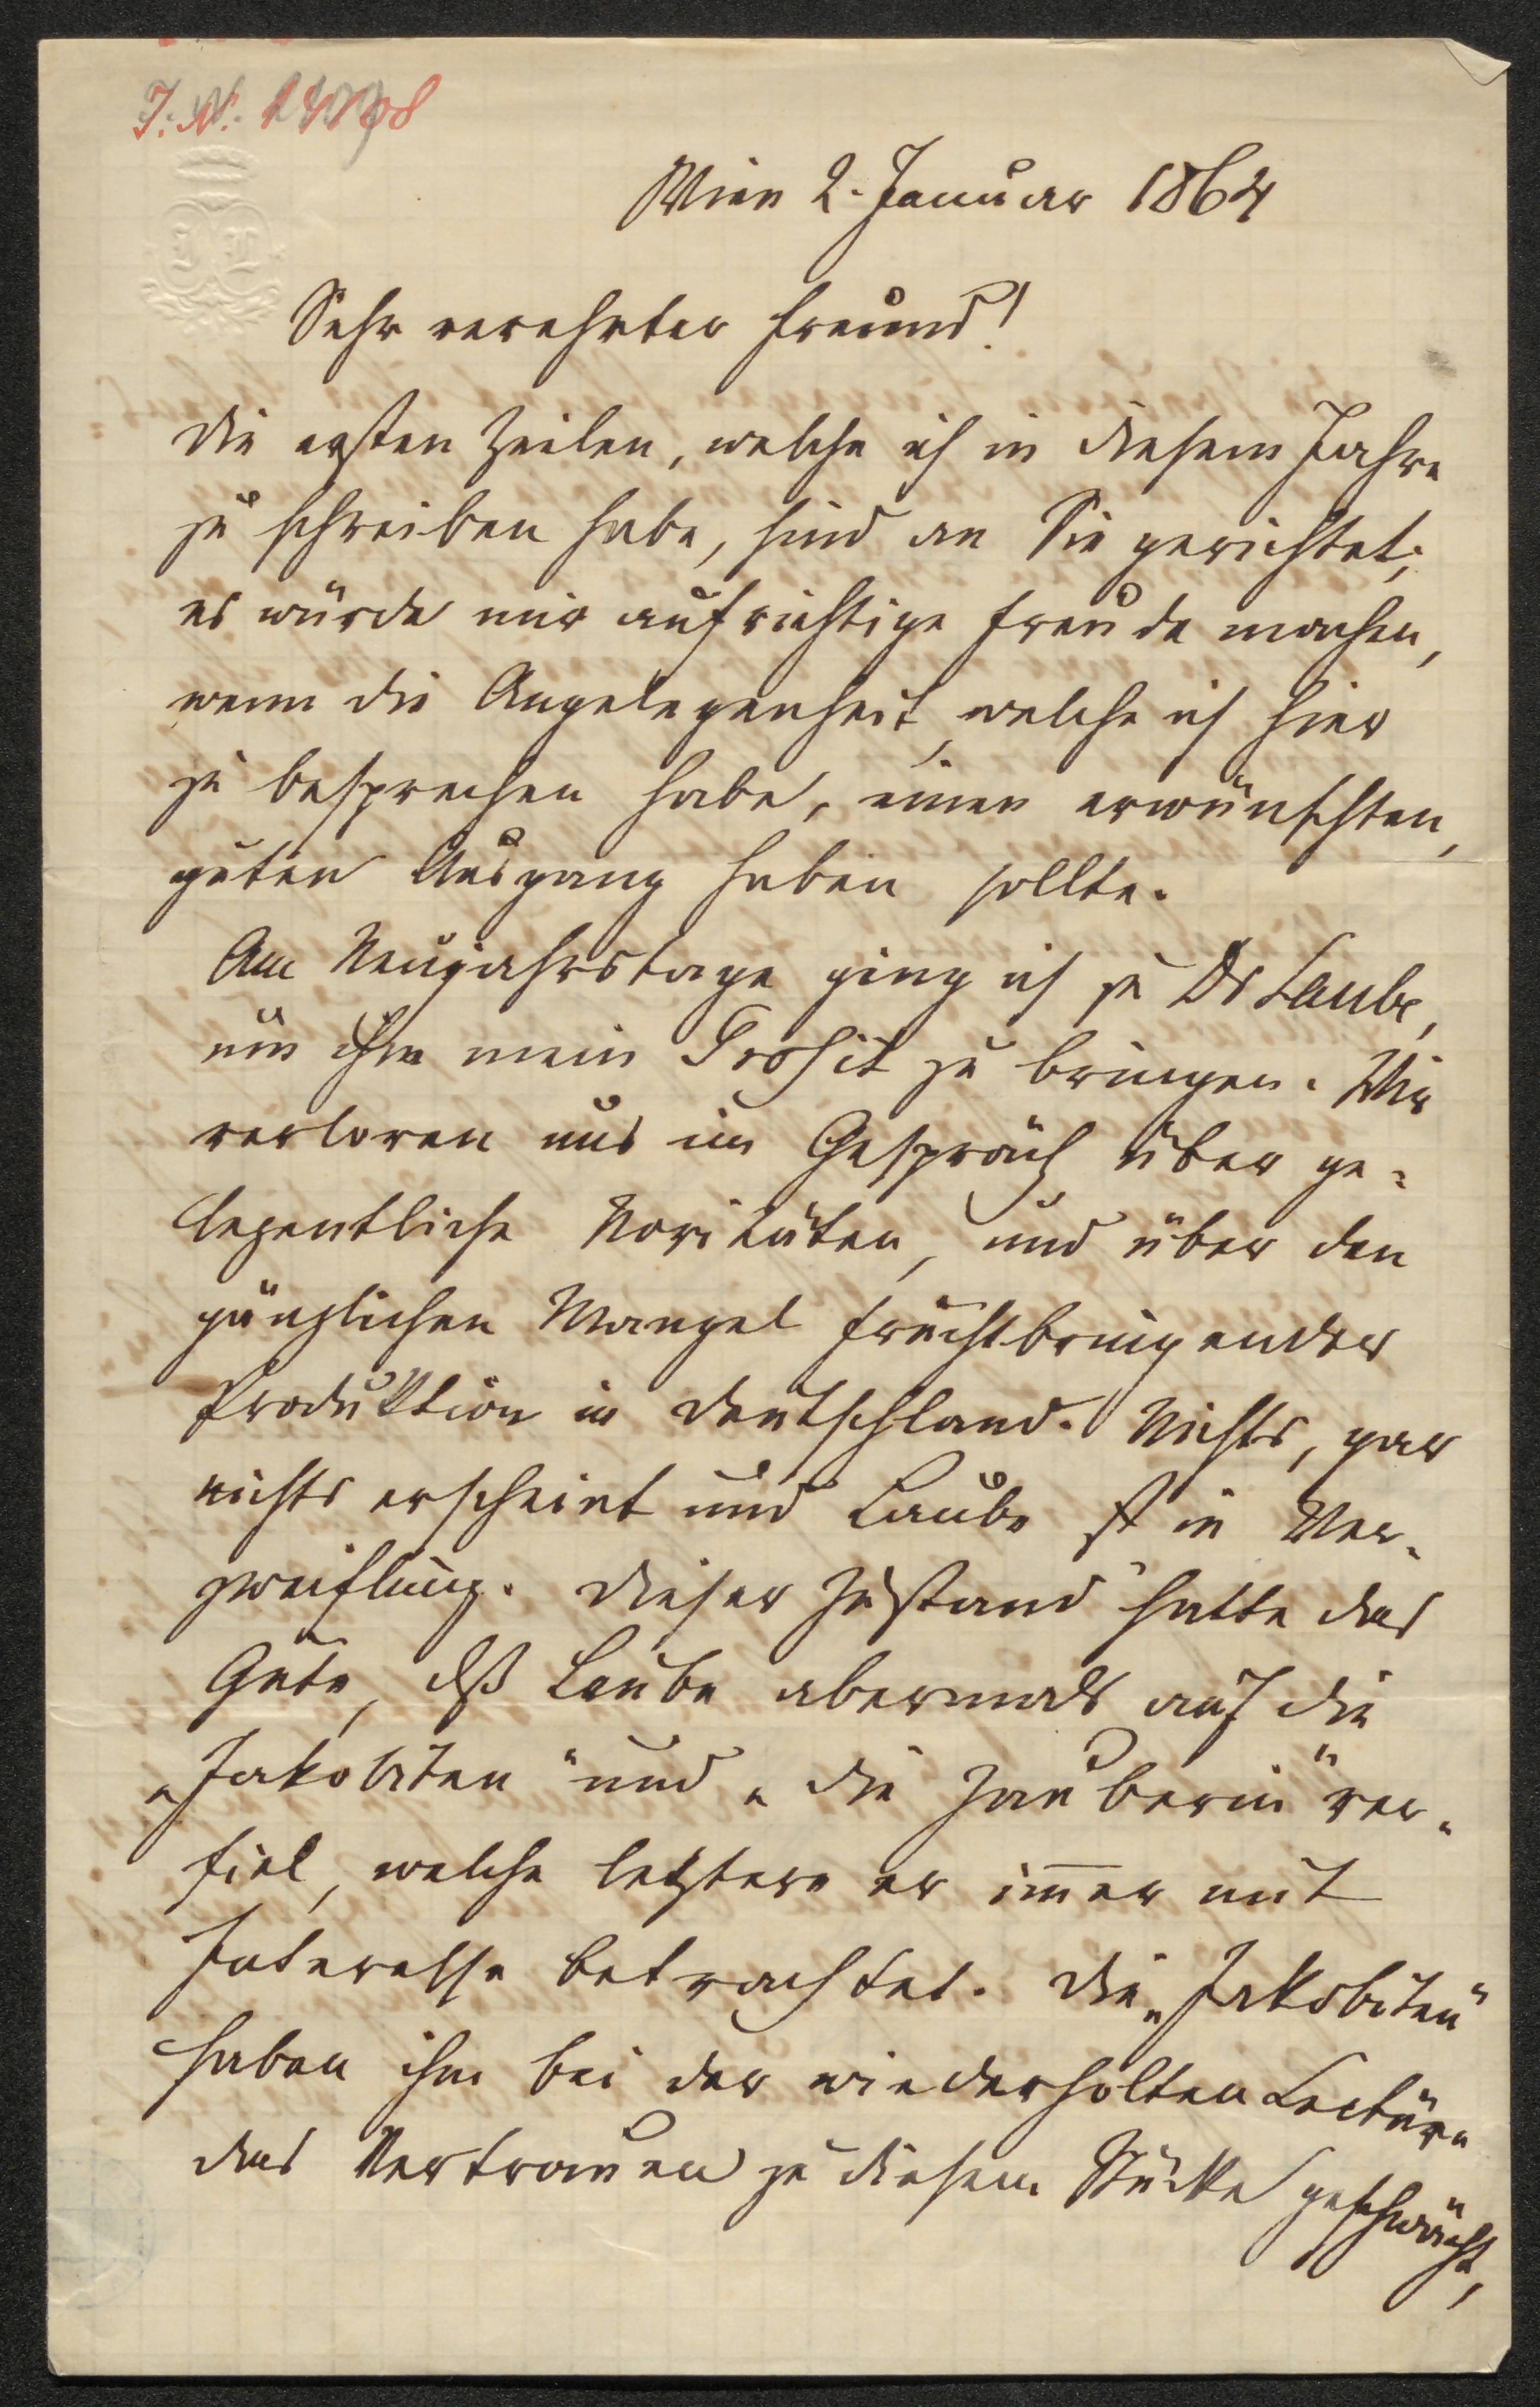 J. N.
Wien 2. Januar 1864
Sehr verehrter Freund!
Die ersten Zeilen, welche ich in diesem Jahre
zu schreiben habe, sind an Sie gerichtet;
es würde mir aufrichtige Freude machen,
wenn die Angelegenheit, welche ich hier
zu besprechen habe, einen erwünschten,
guten Ausgang haben sollte.
Am Neujahrstage ging ich zu Dr Laube,
um ihm mein Prosit zu bringen. Wir
verloren uns im Gespräch über ge-
legentliche Novitäten, und über den
gänzlichen Mangel fruchtbringender
Produktion in Deutschland. Nichts, gar
nichts erscheint und Laube ist in Ver-
zweiflung. Dieser Zustand hatte das
Gute, dß Laube abermals auf die
„Jakobiten“ und „die Zauberin“ ver-
fiel, welche letztere er im̅er mit
Interesse betrachtet. Die „Jakobiten“
haben ihm bei der wiederholten Lectüre
das Vertrauen zu diesem Stücke geschwächt,